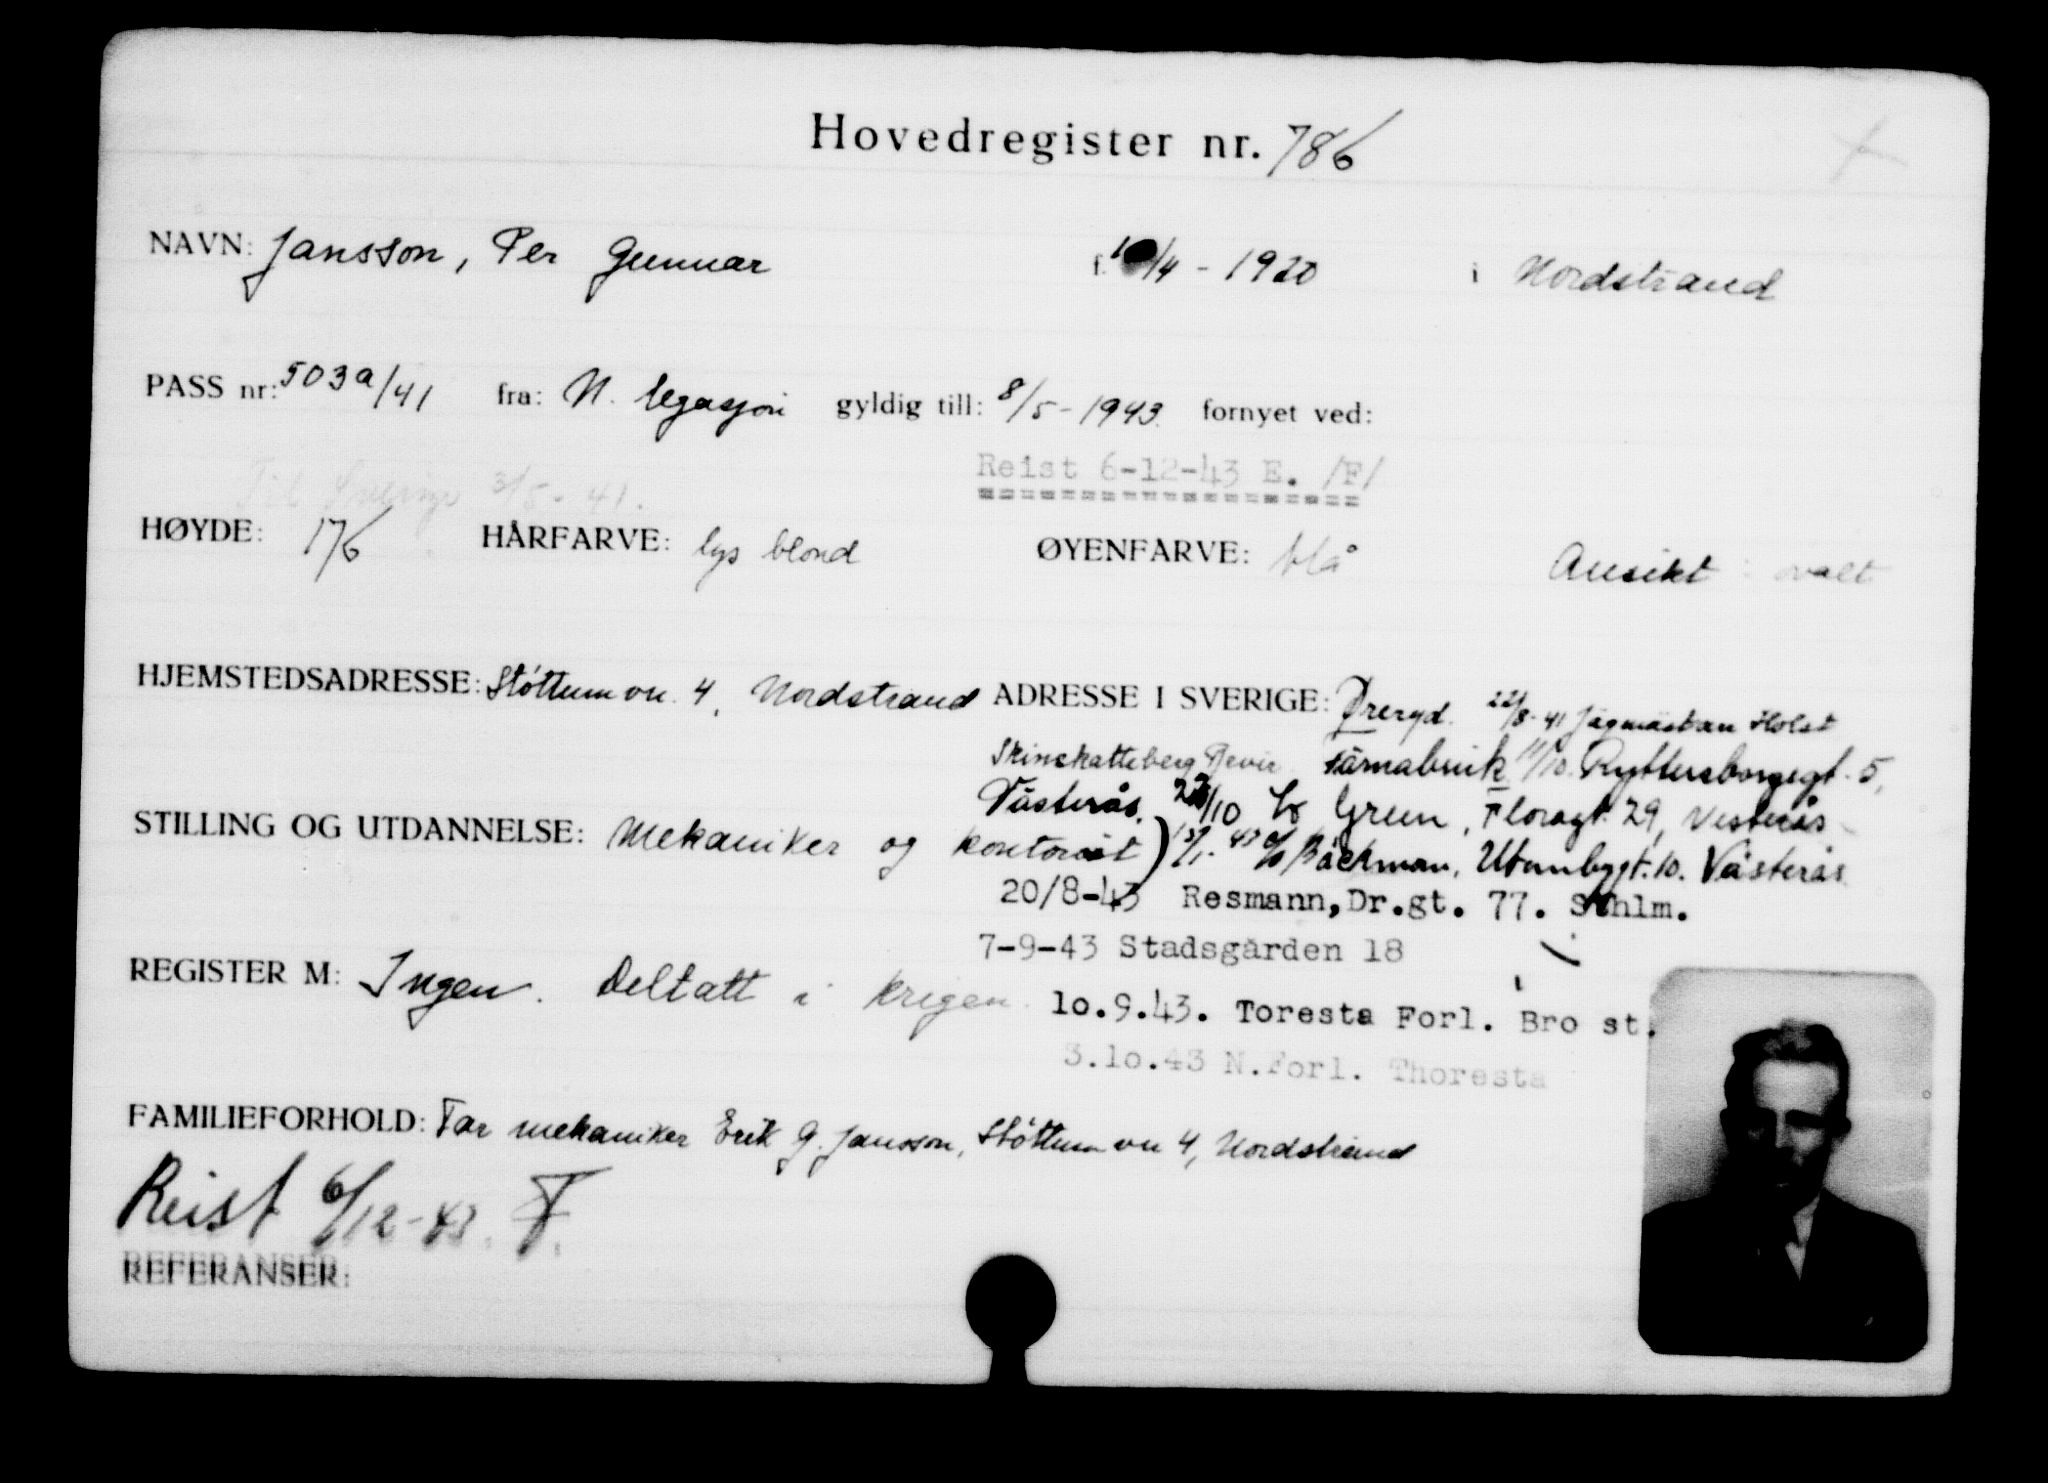 Hovedregister nr. 786
NAVN: Jansson, Per Gunnar f. 10/4 - 1920 i Nordstrand
PASS nr: 503a/41 fra: N. legasjon gyldig till: 8/5 - 1943 fornyet ved:
Til Sverige 3/5 - 41. Reist 6-12-43 E. /F/
HØYDE: 176 HÅRFARVE: lys blond ØYENFARVE: blå Ansikt: ovalt
HJEMSTEDSADRESSE: Støttumvn. 4, Nordstrand ADRESSE I SVERIGE: Øreryd. 22/8-41 Jägmästare Holst
Skinskatteberg Revir Färnabruk 11/10. Ryttersborgsgt. 5,
Västerås. 22/10 Grun, Floragt. 29, Vesterås
STILLING OG UTDANNELSE: Mekaniker og kontorist) 13/1-43 c/o Bäckman, Utmbygt. 10. Västerås
20/8-43 Resmann, Dr.gt. 77. Sthlm.
7-9-43 Stadsgården 18
REGISTER M: Ingen. Deltatt i krigen
10.9.43. Toresta Forl. Bro st.
3.10.43 N.Forl. Thoresta
FAMILIEFORHOLD: Far mekaniker Erik G. Jansson, Støttumvn 4, Nordstrand
Reist 6/12-43. F.
REFERANSER: